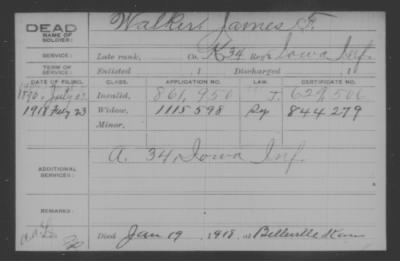 DEAD
NAME OF SOLDIER:
Walker, James F.
SERVICE:
Late rank, Co. K 34 Reg't Iowa Inf.
TERM OF SERVICE:
Enlisted 1 Discharged 1
DATE OF FILING. CLASS. APPLICATION NO. LAW. CERTIFICATE NO.
1890, July Invalid, 861,950 J.
1918 Feby 23 Widow, 1115598 844279
Minor,
ADDITIONAL SERVICES:
A. 34, Iowa Inf.
REMARKS:
Died Jan 19, 1918, at Belleville Kan